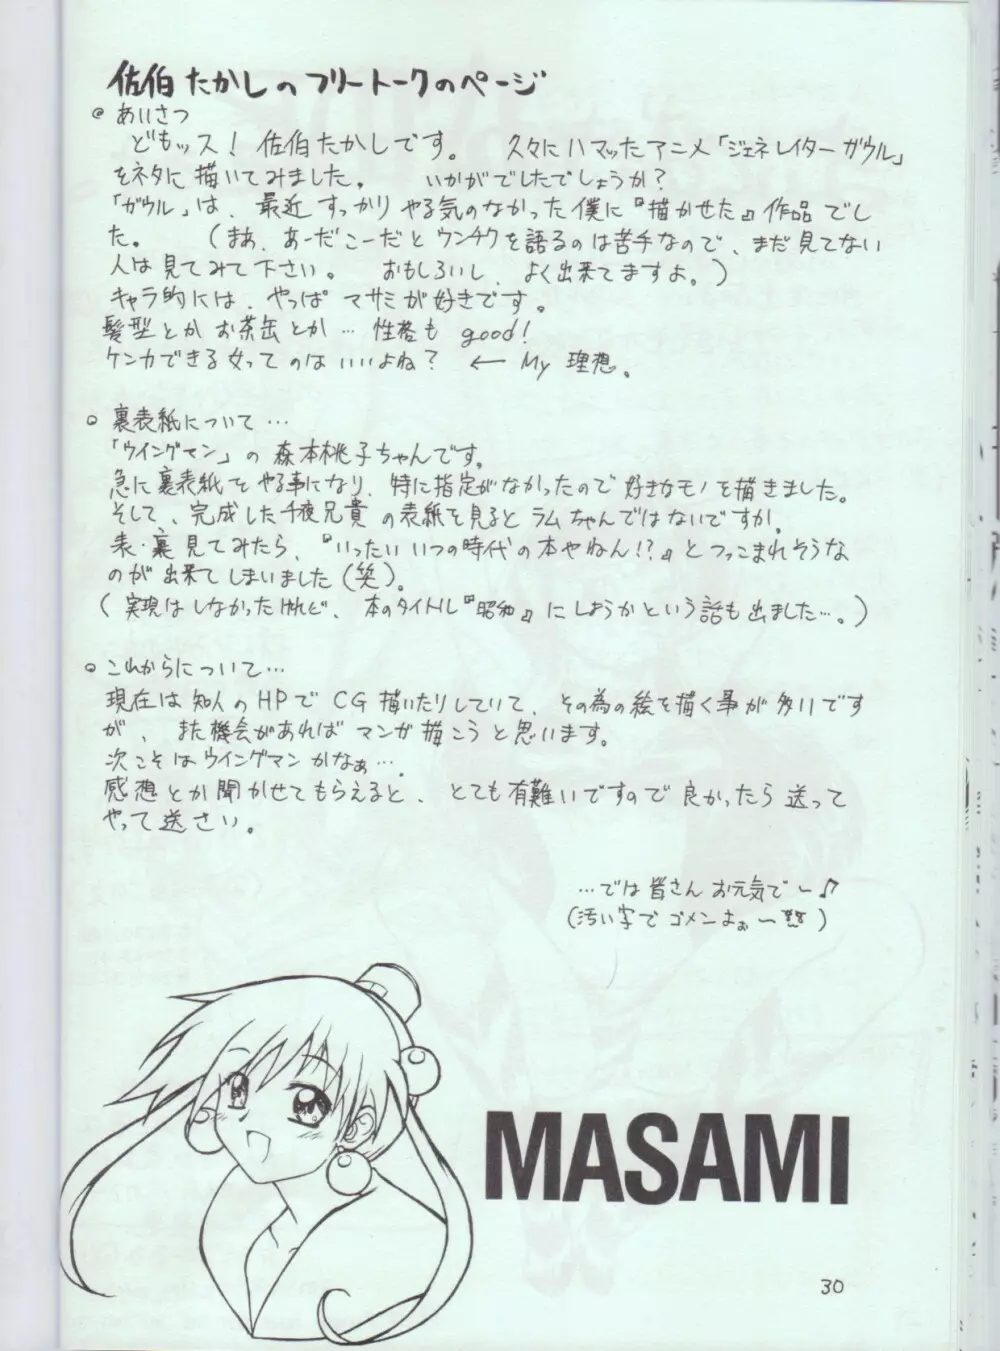 佐伯たかしのフリートークのページ
◎ あいさつ
どもッス! 佐伯たかしです。 久々にハマッたアニメ「ジェネレイターガウル」
をネタに描いてみました。 いかがでしたでしょうか?
「ガウル」は、最近すっかりやる気のなかった僕に『描かせた』作品でし
た。 (まぁ、あーだこーだとウンチクを語るのは苦手なので、まだ見てない
人は見てみて下さい。 おもしろいし、よく出来てますよ。)
キャラ的には、やっぱマサミが好きです。
髪型とかお茶缶とか… 性格も good!
ケンカできる女ってのはいいよね? ← My 理想。
○ 裏表紙について…
「ウイングマン」の森本桃子ちゃんです。
急に裏表紙をやる事になり、特に指定がなかったので好きなモノを描きました。
そして、完成した千夜兄貴の表紙を見るとラムちゃんではないですか。
表・裏見てみたら、『いったいいつの時代の本やねん!?』とつっこまれそうな
のが出来てしまいました(笑)。
(実現はしなかったけれど、本のタイトル『昭和』にしようかという話も出ました…。)
○ これからについて…
現在は知人のHPでCG描いたりしていて、その為の絵を描く事が多いです
が、また機会があればマンガ描こうと思います。
次こそはウイングマンかなぁ…。
感想とか聞かせてもらえると、とても有難いですので良かったら送って
やって送さい。
…では皆さんお元気で〜♪
(汚い字でゴメンよぉ〜)
MASAMI
30